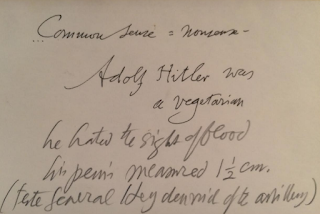 ... Common sense = nonsense -
Adolf Hitler was
a vegetarian
he hated the sight of blood
his penis measured 1 1/2 cm.
(teste General of the artillery)